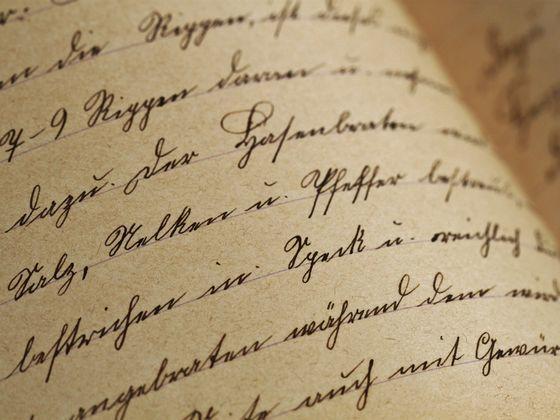 die Rippen, ist dieses
7-9 Rippen daran u.
dazu. Der Hasenbraten
Salz, Nelken u. Pfeffer bestreut,
bestrichen in Speck u. reichlich
angebraten während dem wird
auch mit Gewür